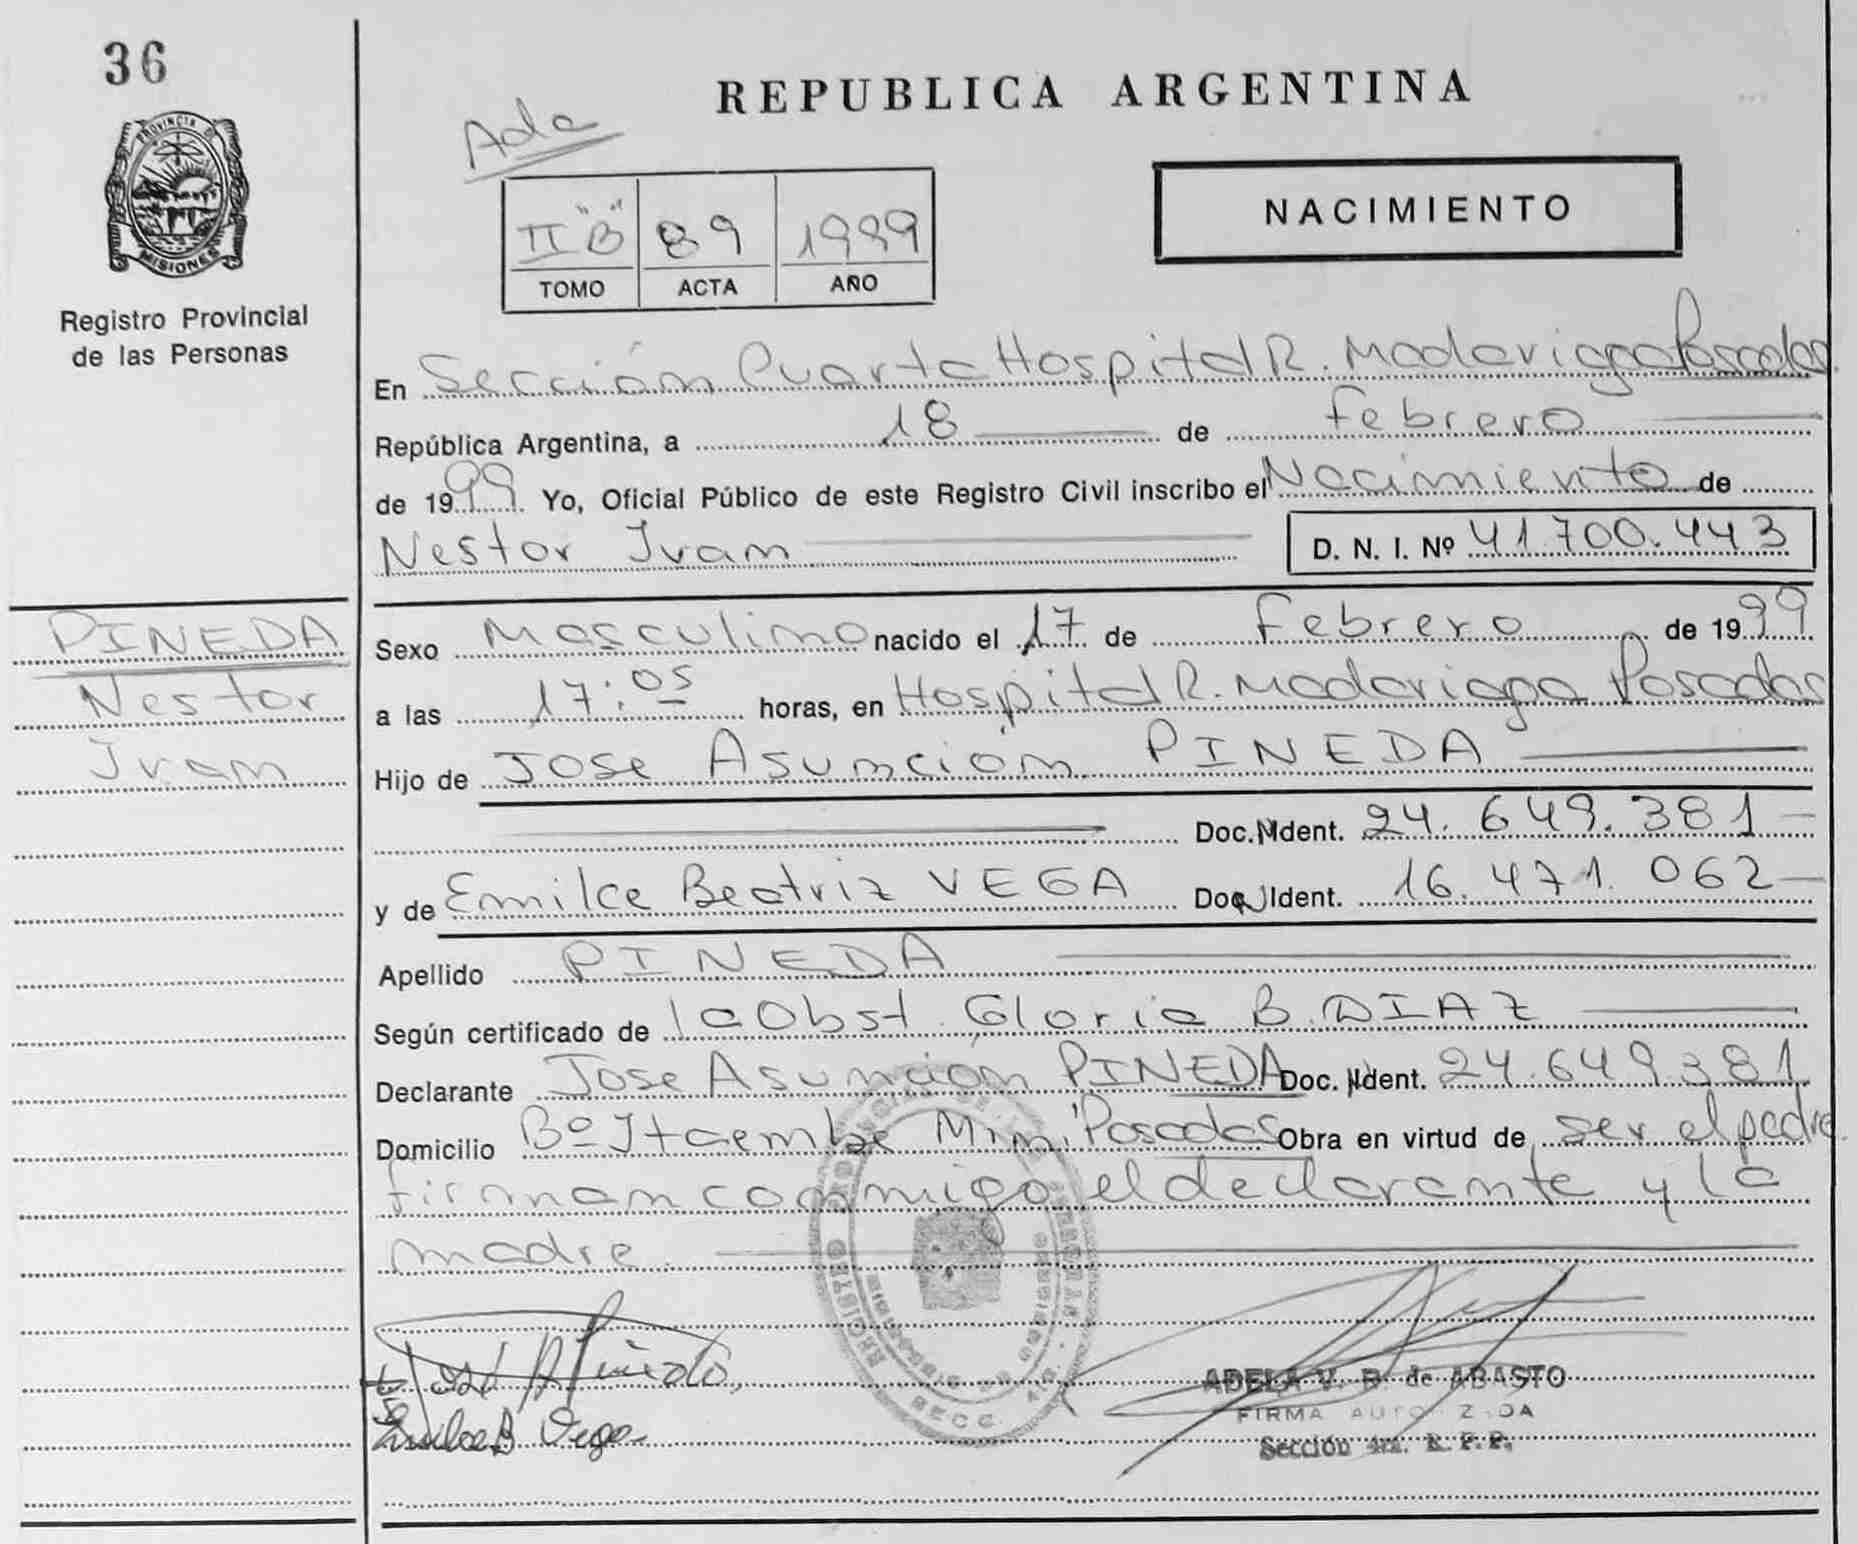 36
PROVINCIA DE
MISIONES
Registro Provincial
de las Personas
REPUBLICA ARGENTINA
Ada
II "B" 89 1999
TOMO ACTA AÑO
NACIMIENTO
En Sección Cuarta Hospital R. Madariaga Posadas
República Argentina, a 18 de febrero
de 1999 Yo, Oficial Público de este Registro Civil inscribo el Nacimiento de
Nestor Ivan D. N. I. Nº 41.700.443
PINEDA
Nestor
Ivan
Sexo Masculino nacido el 17 de febrero de 1999
a las 17:05 horas, en Hospital R. Madariaga Posadas
Hijo de Jose Asunción PINEDA
Doc. Ident. 24.649.381
y de Emilce Beatriz VEGA Doc. Ident. 16.471.062
Apellido PINEDA
Según certificado de la Obst. Gloria B. DIAZ
Declarante Jose Asunción PINEDA Doc. Ident. 24.649.381
Domicilio Bº Itaembe Mini Posadas Obra en virtud de ser el padre
firman conmigo el declarante y la
madre.
REGISTRO
SECC. 4ta.
Emilce B Vega
ADELA V. B. de ABASTO
FIRMA AUTORIZADA
Sección 4ta. R. P. P.